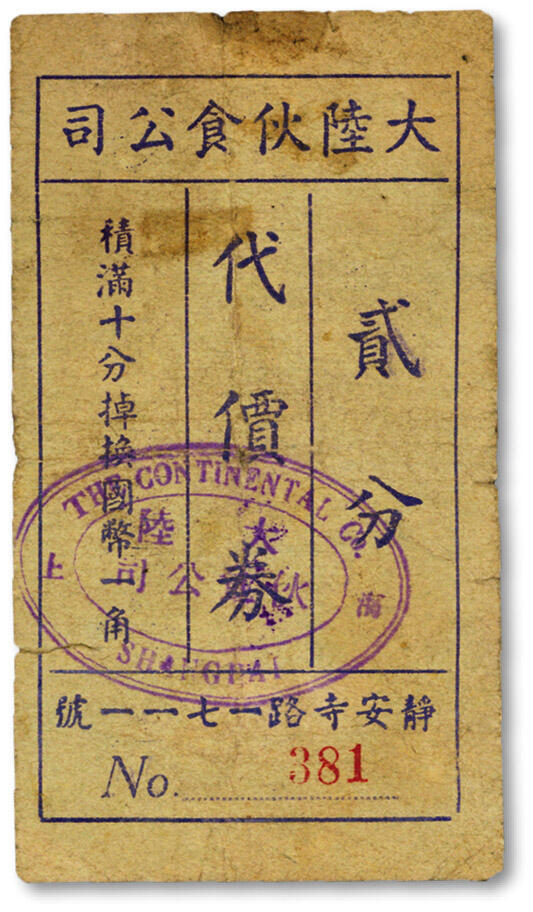 大陸伙食公司
貳分
代價券
積滿十分掉換國幣一角
THE CONTINENTAL CO.
大陸
伙食公司
上海
SHANGHAI
靜安寺路一七一一號
No. 381